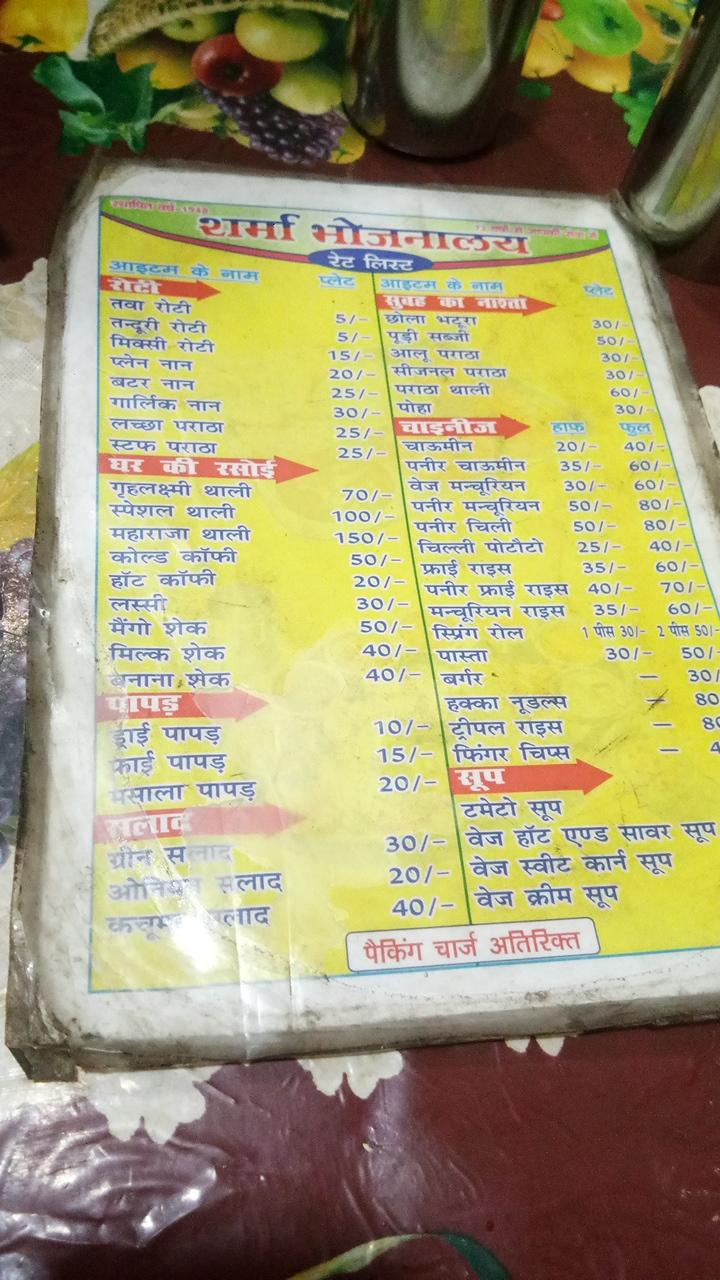 स्थापित वर्ष-1948
शर्मा भोजनालय
रेट लिस्ट
आइटम के नाम प्लेट
रोटी
तवा रोटी 5/-
तन्दूरी रोटी 5/-
मिक्सी रोटी 15/-
प्लेन नान 20/-
बटर नान 25/-
गार्लिक नान 30/-
लच्छा पराठा 25/-
स्टफ पराठा 25/-
घर की रसोई
गृहलक्ष्मी थाली 70/-
स्पेशल थाली 100/-
महाराजा थाली 150/-
कोल्ड कॉफी 50/-
हॉट कॉफी 20/-
लस्सी 30/-
मैंगो शेक 50/-
मिल्क शेक 40/-
बनाना शेक 40/-
पापड़
ड्राई पापड़ 10/-
फ्राई पापड़ 15/-
मसाला पापड़ 20/-
सलाद
ग्रीन सलाद 30/-
ओनियन सलाद 20/-
कचूमर सलाद 40/-
आइटम के नाम प्लेट
सुबह का नाश्ता
छोला भटूरा 30/-
पूड़ी सब्जी 50/-
आलू पराठा 30/-
सीजनल पराठा 30/-
पराठा थाली 60/-
पोहा 30/-
चाइनीज हाफ फुल
चाऊमीन 20/- 40/-
पनीर चाऊमीन 35/- 60/-
वेज मन्चूरियन 30/- 60/-
पनीर मन्चूरियन 50/- 80/-
पनीर चिली 50/- 80/-
चिल्ली पोटौटो 25/- 40/-
फ्राई राइस 35/- 60/-
पनीर फ्राई राइस 40/- 70/-
मन्चूरियन राइस 35/- 60/-
स्प्रिंग रोल 1 पीस 30/- 2 पीस 50/-
पास्ता 30/- 50/-
बर्गर — 30/
हक्का नूडल्स — 80
ट्रीपल राइस — 80
फिंगर चिप्स — 4
सूप
टमेटो सूप
वेज हॉट एण्ड सावर सूप
वेज स्वीट कार्न सूप
वेज क्रीम सूप
पैकिंग चार्ज अतिरिक्त